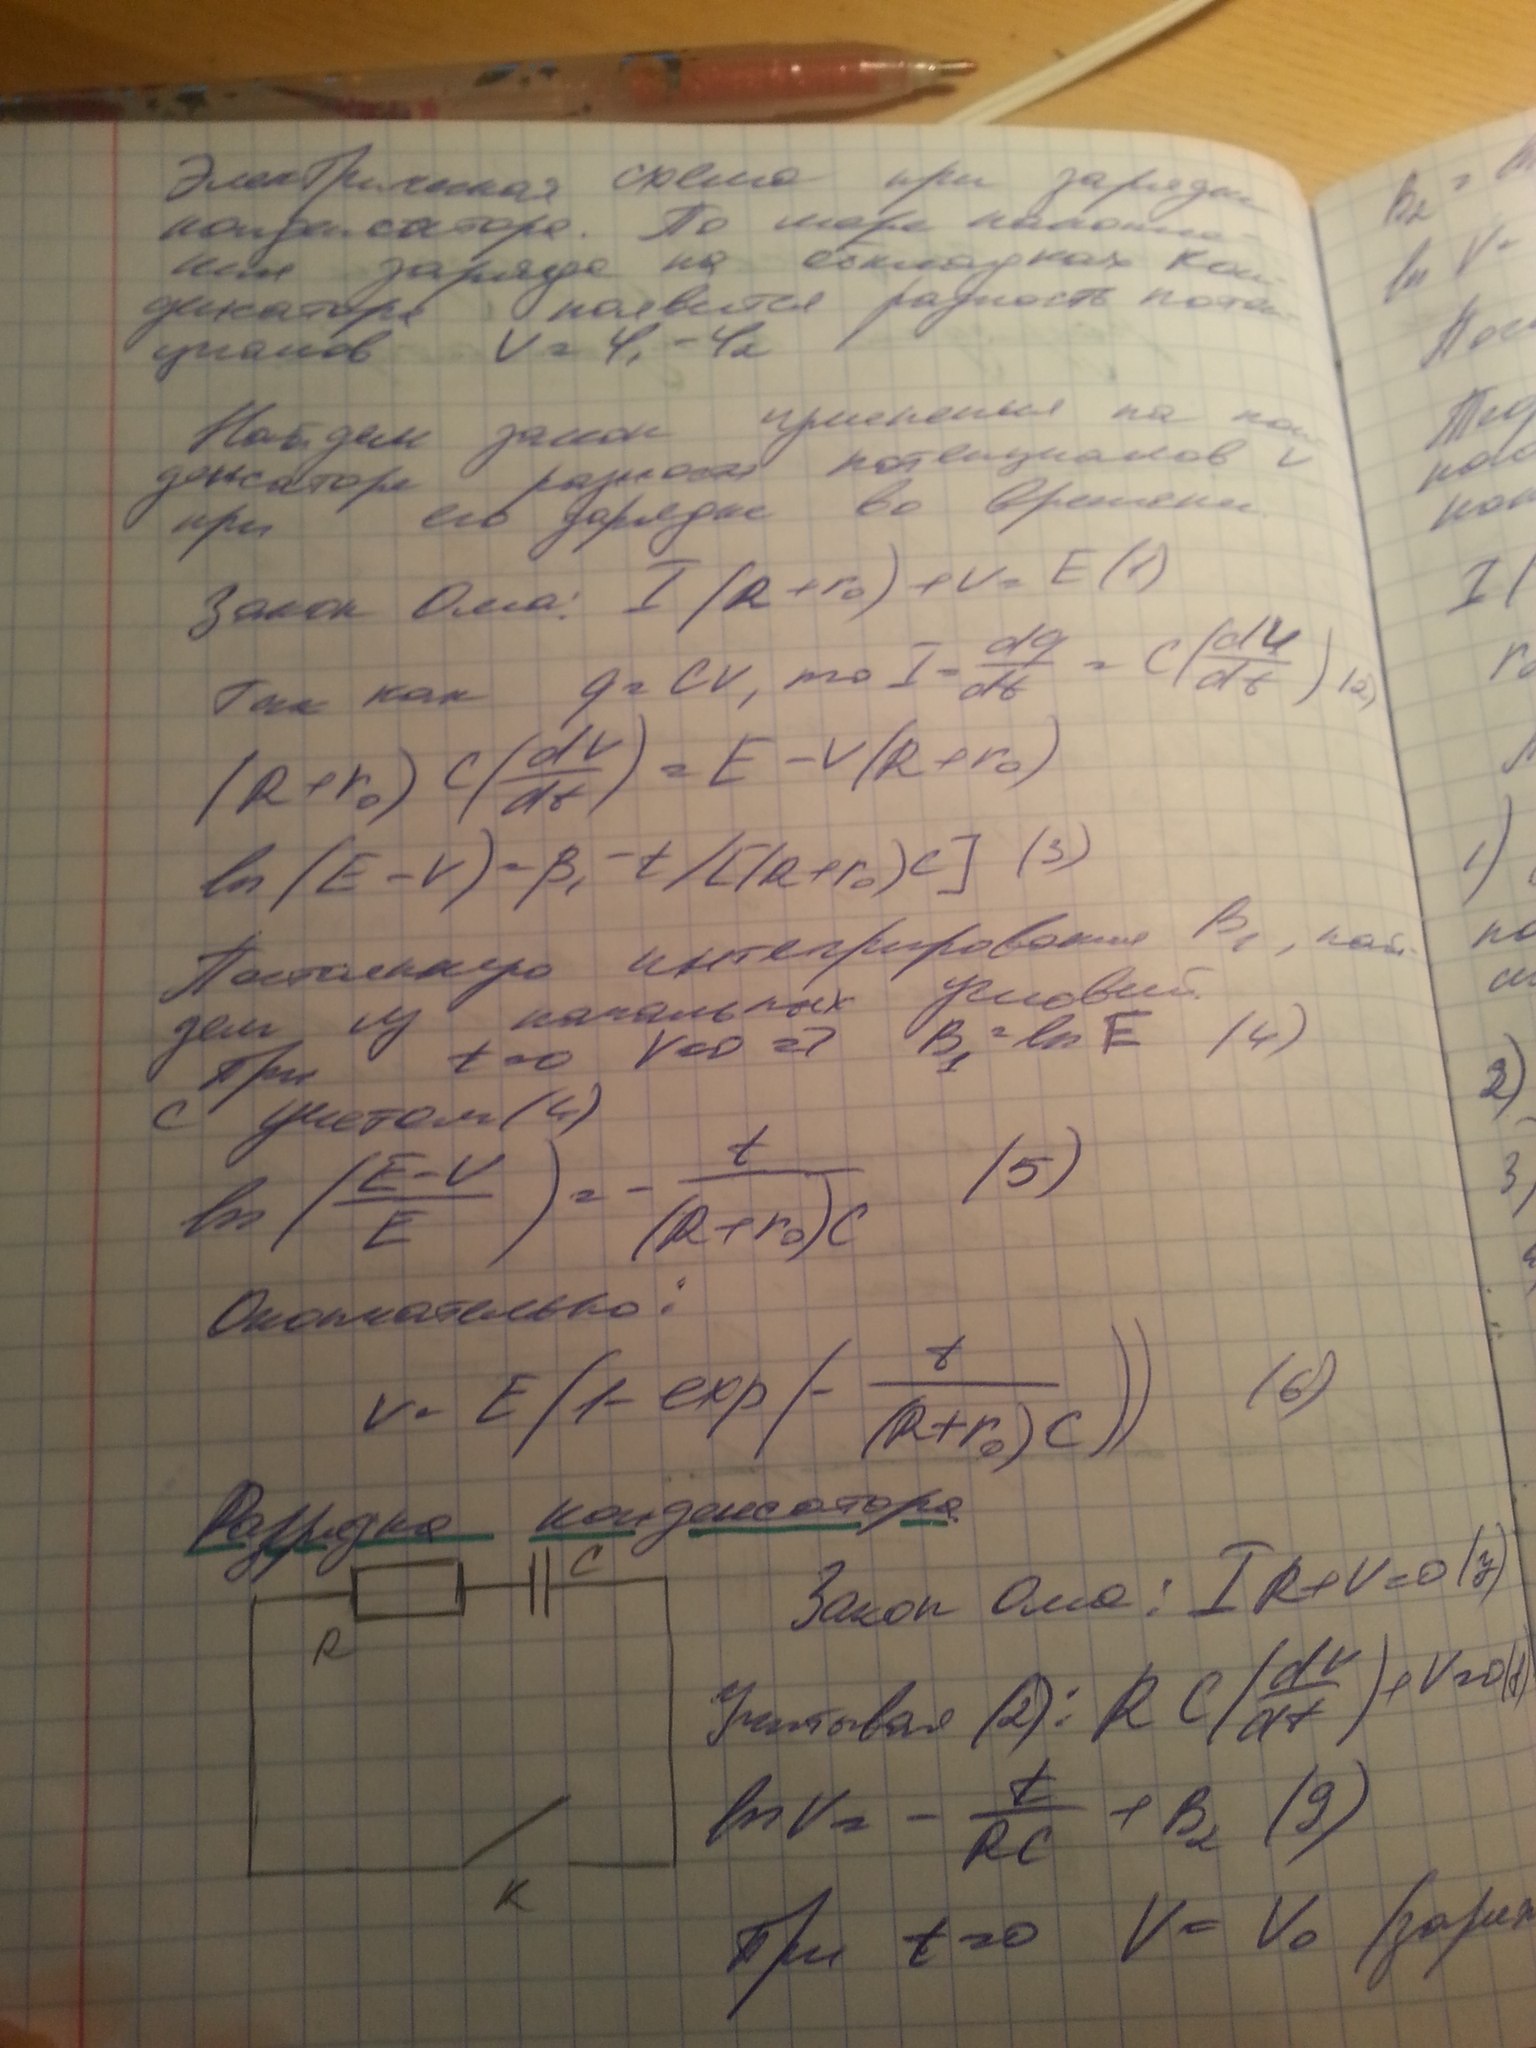 Электрическая схема при зарядки
конденсатора. По мере накопле-
ния заряда на обкладках кон-
денсатора появится разность потен-
циалов V = φ₁ - φ₂
Найдем закон изменения на кон
денсаторе разности потенциалов V
при его зарядке во времени
Закон Ома: I(R+r₀)+V=E (1)
Так как q=CV, то I=dq/dt = C(dU/dt) (2)
(R+r₀) C(dV/dt) = E-V(R+r₀)
ln(E-V)=β₁-t/[(R+r₀)C] (3)
Постоянную интегрирования B₁, най-
дем из начальных условий.
При t=0 V=0 => B₁=ln E (4)
С учетом (4)
ln((E-V)/E) = - t/((R+r₀)C) (5)
Окончательно:
V= E(1-exp(- t/((R+r₀)C))) (6)
Разрядка конденсатора
C
R
K
Закон Ома: IR+V=0 (7)
Учитывая (2): RC(dV/dt)+V=0 (8)
ln V= - t/RC + B₂ (9)
При t=0 V=V₀
B₂ =
ln V=
I(
r₀
1)
2)
3)